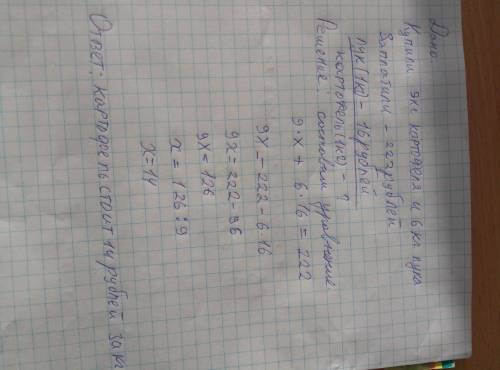 Дано
Купили 9кг картофеля и 6 кг лука
Заплатили - 222 рублей
Лук (1кг) - 16 рублей
Картофель (1кг) - ?
Решение: составим уравнение
9·x + 6·16 = 222
9x = 222 - 6·16
9x = 222 - 96
9x = 126
x = 126 : 9
x = 14
Ответ: картофель стоит 14 рублей за кг